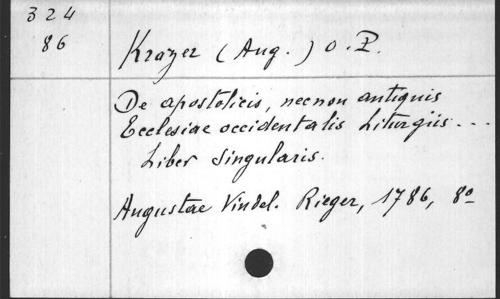 324
86
Krazer (Aug.) O. P.
De apostolicis, necnon antiquis
Ecclesiae occidentalis Liturgiis...
Liber singularis.
Augustae Vindel. Rieger, 1786, 8º